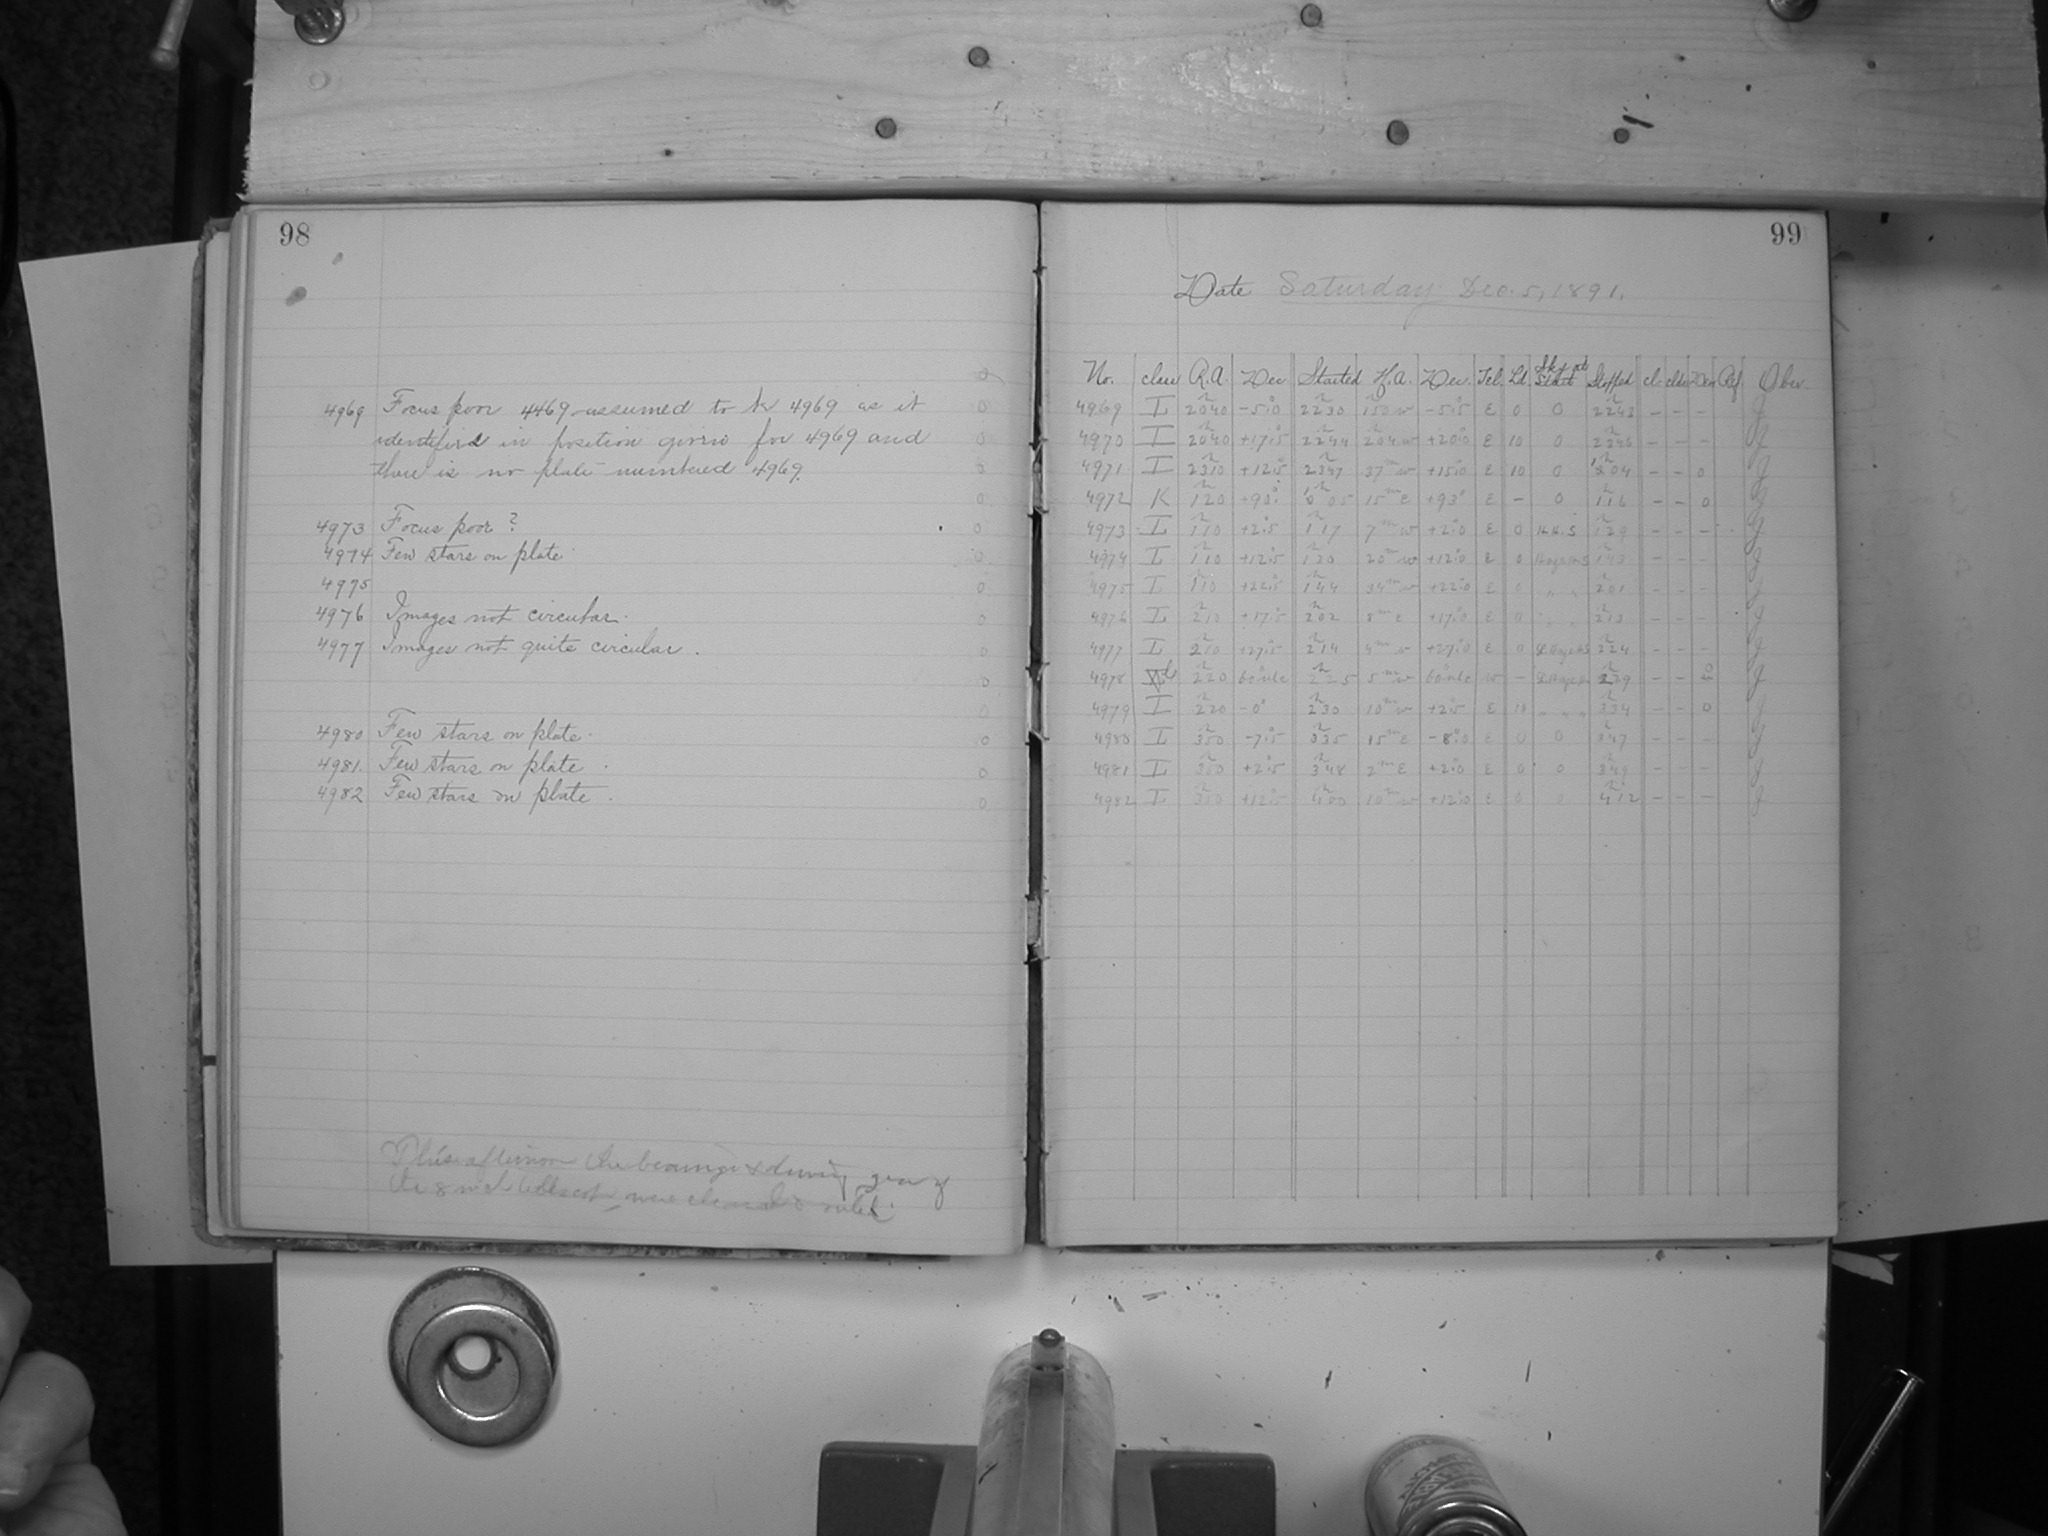 98
4969 Focus poor 4469 assumed to be 4969 as it
identified in position given for 4969 and
there is no plate numbered 4969.
4973 Focus poor ?
4974 Few stars on plate
4975
4976 Images not circular.
4977 Images not quite circular.
4980 Few stars on plate.
4981. Few stars on plate.
4982 Few stars on plate.
This afternoon the bearings & driving gear of
the 8 inch telescope were cleaned & oiled.
99
Date Saturday Dec. 5, 1891.
No. class R.A. Dec Started H.A. Dec. Tel. Ld. Sky at Start Stopped cl. Obsr.
4969 I 20 40 -5.0 22 30 150 w -5.5 E 0 0 22 43 - - - J
4970 I 20 40 +17.5 22 44 204 w +20.0 E 10 0 - - - J
4971 I 23 10 +12.5 23 47 37 m w +15.0 E 10 0 04 - - 0 J
4972 K 1 20 +90° 05 15 m E +93° E - 0 1 16 - - 0 J
4973 I 1 10 +2.5 1 17 7 m w +2.0 E 0 1 29 - - - J
4974 I 1 10 +12.5 1 30 20 m w +12.0 E 0 1 43 - - - J
4975 I 1 10 +22.5 1 44 34 m w +22.0 E 0 " " 2 01 - - - J
4976 I 2 10 +17.5 2 02 8 m E +17.0 E 0 " " 2 13 - - - J
4977 I 2 10 +27.5 2 14 4 m w +27.0 E 0 2 24 - - - J
4978 2 20 2 25 5 m w w - 2 29 - - J
4979 I 2 20 -0° 2 30 10 m w +2.5 E 10 " " " 3 34 - - 0 J
4980 I 3 50 -7.5 3 35 15 m E -8.0 E 0 0 3 47 - - - J
4981 I 3 50 +2.5 3 48 2 m E +2.0 E 0 0 - - - J
4982 I 3 50 +12.5 4 00 10 m w +12.0 E 0 0 4 12 - - - J